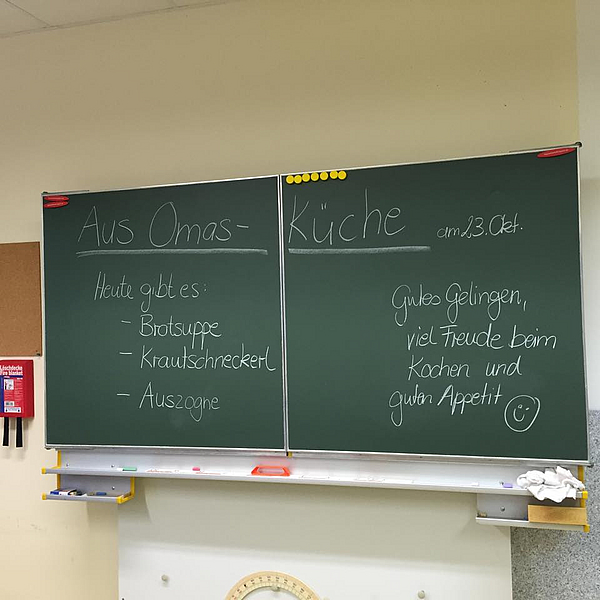 Aus Omas-Küche am 23. Okt.
Heute gibt es:
- Brotsuppe
- Krautschneckerl
- Auszogne
Gutes Gelingen,
viel Freude beim
Kochen und
guten Appetit
Löschdecke
Fire blanket